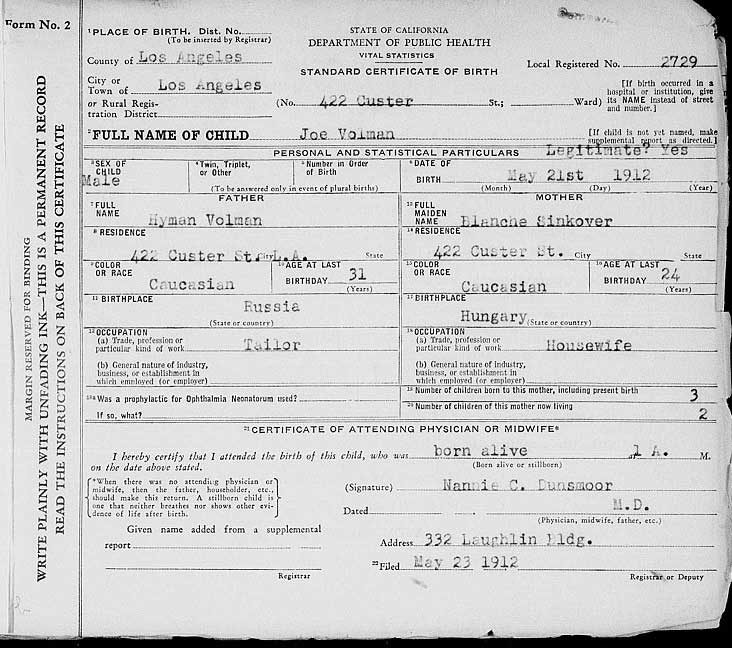 Form No. 2
MARGIN RESERVED FOR BINDING
WRITE PLAINLY WITH UNFADING INK—THIS IS A PERMANENT RECORD
READ THE INSTRUCTIONS ON BACK OF THIS CERTIFICATE
1 PLACE OF BIRTH. Dist. No.
(To be inserted by Registrar)
County of Los Angeles
City or
Town of Los Angeles
or Rural Regis-
tration District
STATE OF CALIFORNIA
DEPARTMENT OF PUBLIC HEALTH
VITAL STATISTICS
STANDARD CERTIFICATE OF BIRTH
Local Registered No. 2729
(No. 422 Custer St.; Ward)
[If birth occurred in a
hospital or institution, give
its NAME instead of street
and number.]
2 FULL NAME OF CHILD Joe Volman
[If child is not yet named, make
supplemental report as directed.]
PERSONAL AND STATISTICAL PARTICULARS Legitimate? Yes
3 SEX OF
CHILD
Male
4 Twin, Triplet,
or Other
5 Number in Order
of Birth
(To be answered only in event of plural births)
6 DATE OF
BIRTH May 21st 1912
(Month) (Day) (Year)
FATHER
7 FULL
NAME Hyman Volman
8 RESIDENCE
422 Custer St. City L.A. State
9 COLOR
OR RACE
Caucasian
10 AGE AT LAST
BIRTHDAY 31
(Years)
11 BIRTHPLACE
Russia
(State or country)
12 OCCUPATION
(a) Trade, profession or
particular kind of work Tailor
(b) General nature of industry,
business, or establishment in
which employed (or employer)
MOTHER
13 FULL
MAIDEN
NAME Blanche Sinkover
14 RESIDENCE
422 Custer St. City State
15 COLOR
OR RACE
Caucasian
16 AGE AT LAST
BIRTHDAY 24
(Years)
17 BIRTHPLACE
Hungary
(State or country)
18 OCCUPATION
(a) Trade, profession or
particular kind of work Housewife
(b) General nature of industry,
business, or establishment in
which employed (or employer)
Was a prophylactic for Ophthalmia Neonatorum used?
If so, what?
19 Number of children born to this mother, including present birth 3
20 Number of children of this mother now living 2
21 CERTIFICATE OF ATTENDING PHYSICIAN OR MIDWIFE*
I hereby certify that I attended the birth of this child, who was born alive at 1 A. M.
on the date above stated.
(Born alive or stillborn)
*When there was no attending physician or
midwife, then the father, householder, etc.,
should make this return. A stillborn child is
one that neither breathes nor shows other evi-
dence of life after birth.
(Signature) Nannie C. Dunsmoor
Dated M.D.
(Physician, midwife, father, etc.)
Given name added from a supplemental
report
Registrar
Address 332 Laughlin Bldg.
22 Filed May 23 1912
Registrar or Deputy